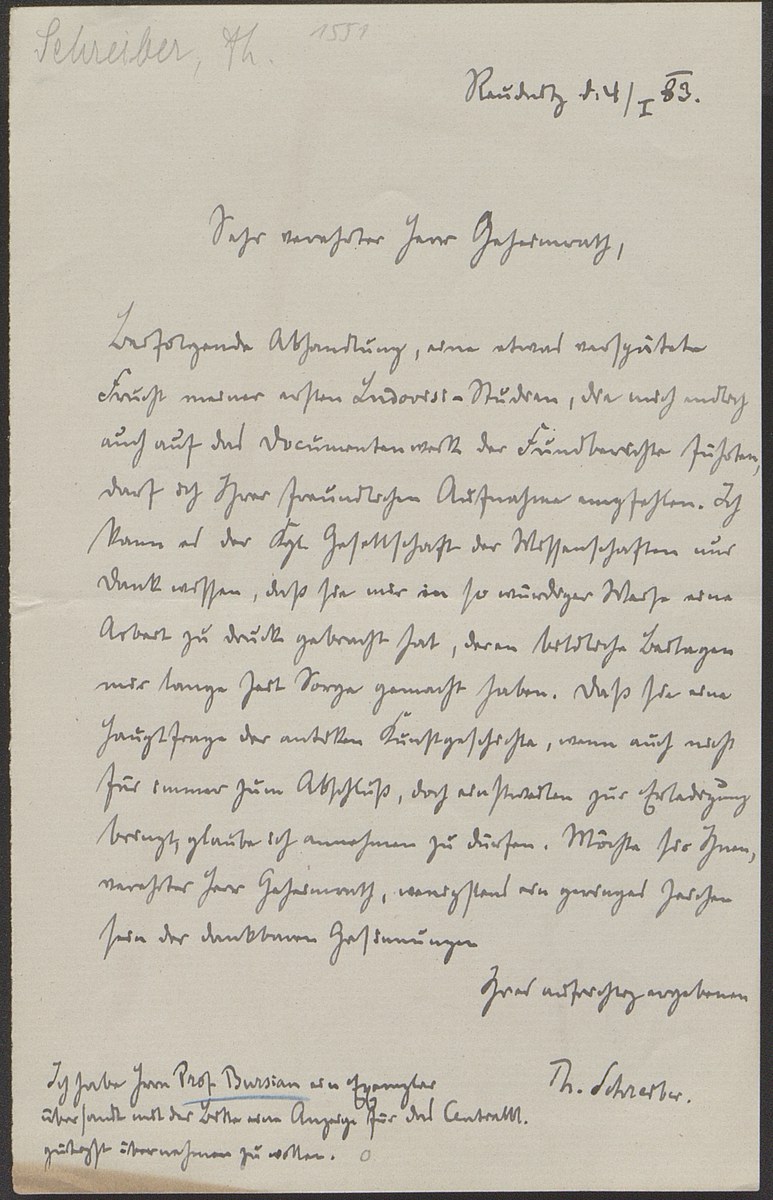 Schreiber, Th. 1551
Raudnitz d. 4/I 83.
Sehr verehrter Herr Geheimrath,
Beifolgende Abhandlung, eine etwas verspätete
Frucht meiner ersten Ludovisi-Studien, die mich endlich
auch auf das Documentenwerk der Fundberichte führten,
darf ich Ihrer freundlichen Aufnahme empfehlen. Ich
kann es der Kgl. Gesellschaft der Wissenschaften nur
Dank wissen, daß sie mir in so würdiger Weise eine
Arbeit zu druck gebracht hat, deren bildliche Beilagen
mir lange Zeit Sorge gemacht haben. Daß sie eine
Hauptfrage der antiken Kunstgeschichte, wenn auch nicht
für immer zum Abschluß, doch einstweilen zur Erledigung
bringt, glaube ich annehmen zu dürfen. Möchte sie Ihnen,
verehrter Herr Geheimrath, wenigstens ein geringes Zeichen
sein der dankbaren Gesinnungen
Ihres aufrichtig ergebenen
Th. Schreiber.
Ich habe Herrn Prof. Bursian ein Exemplar
übersandt mit der Bitte eine Anzeige für das Centralbl.
gütigst übernehmen zu wollen.